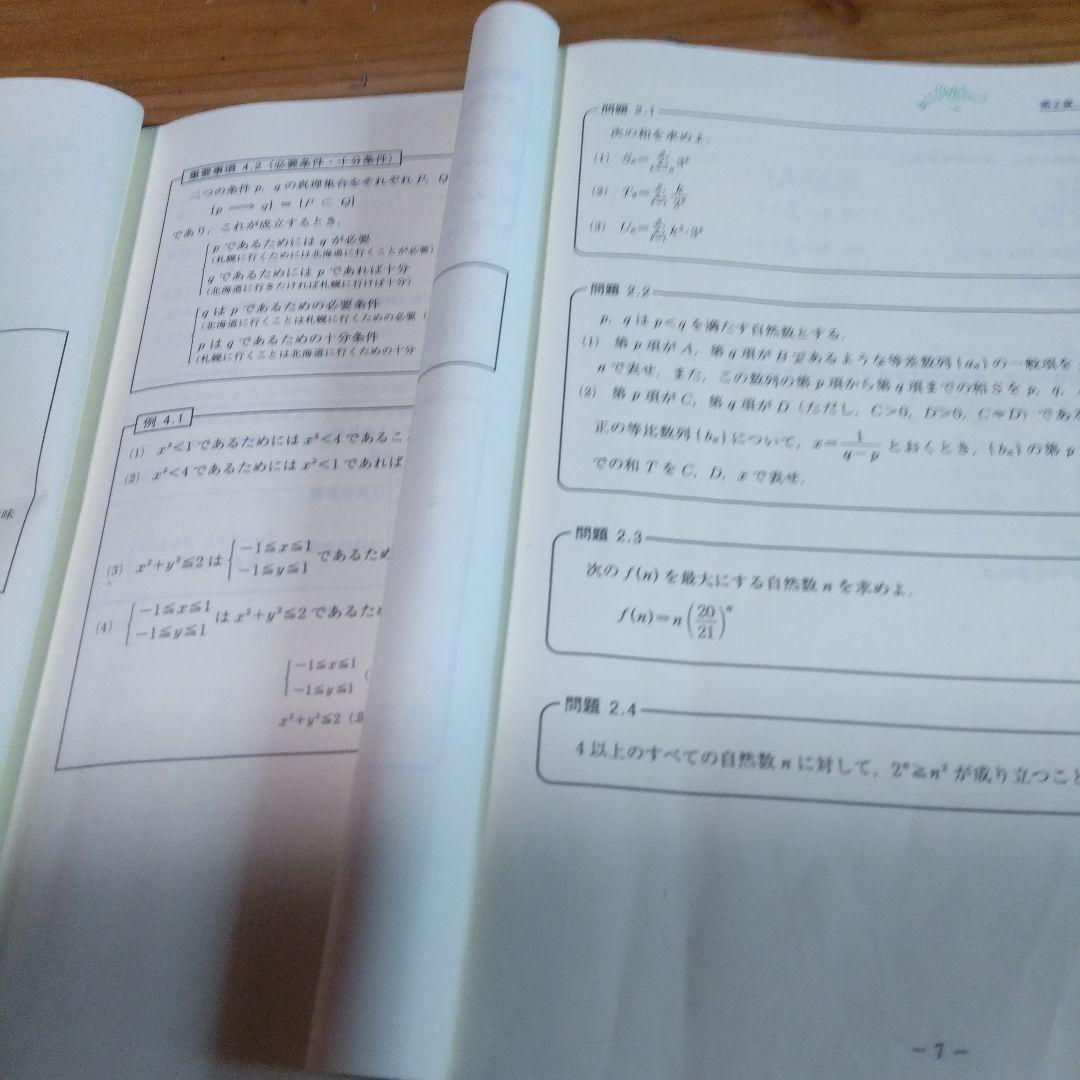 味
重要事項 4.2 (必要条件・十分条件)
二つの条件 p, q の真理集合をそれぞれ P, Q
[p ⟹ q] = [P ⊂ Q]
であり, これが成立するとき,
p であるためには q が必要
(札幌に行くためには北海道に行くことが必要)
q であるためには p であれば十分
(北海道に行きたければ札幌に行けば十分)
q は p であるための必要条件
(北海道に行くことは札幌に行くための必要
p は q であるための十分条件
(札幌に行くことは北海道に行くための十分
例 4.1
(1) x²<1 であるためには x²<4 であるこ
(2) x²<4 であるためには x²<1 であれば
(3) x²+y²≦2 は { −1≦x≦1 −1≦y≦1 であるため
(4) { −1≦x≦1 −1≦y≦1 は x²+y²≦2 であるため
{ −1≦x≦1 −1≦y≦1 (
x²+y²≦2 (北
第2章
問題 2.1
次の和を求めよ.
(1)
(2)
(3)
問題 2.2
p, q は p<q を満たす自然数とする.
(1) 第 p 項が A, 第 q 項が B であるような等差数列 {aₙ} の一般項を
n で表せ. また, この数列の第 p 項から第 q 項までの和 S を p, q,
(2) 第 p 項が C, 第 q 項が D (ただし, C>0, D>0, C≠D) であ
正の等比数列 {bₙ} について, x=1/(q−p) とおくとき, {bₙ} の第 p
での和 T を C, D, x で表せ.
問題 2.3
次の f(n) を最大にする自然数 n を求めよ.
f(n)=n(20/21)ⁿ
問題 2.4
4 以上のすべての自然数 n に対して, 2ⁿ≧n² が成り立つこと
−7−